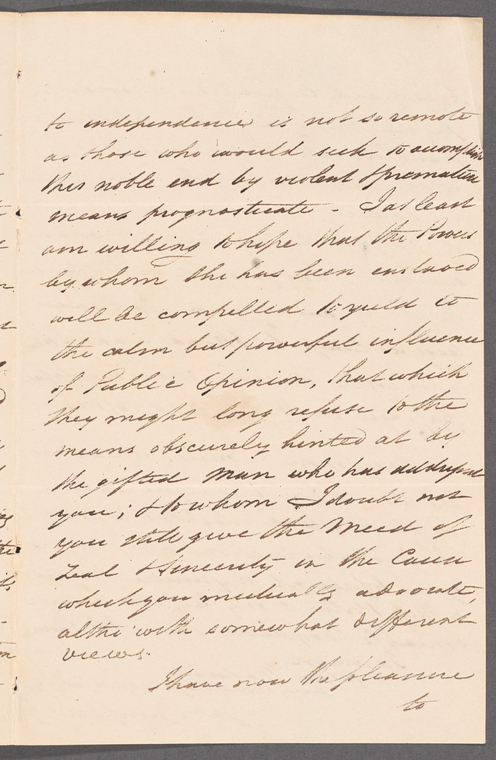 to independence is not so remote
as those who would seek to accomplish
this noble end by violent & premature
means prognosticate - I at least
am willing to hope that the Powers
by whom she has been enslaved
will be compelled to yield to
the calm but powerful influence
of Public Opinion, that which
they might long refuse to the
means obscurely hinted at by
the gifted man who has addressed
you; & to whom I doubt not
you still give the Meed of
Zeal & Sincerity in the Cause
which you mutually advocate,
altho' with somewhat different
views.
I have now the pleasure
to